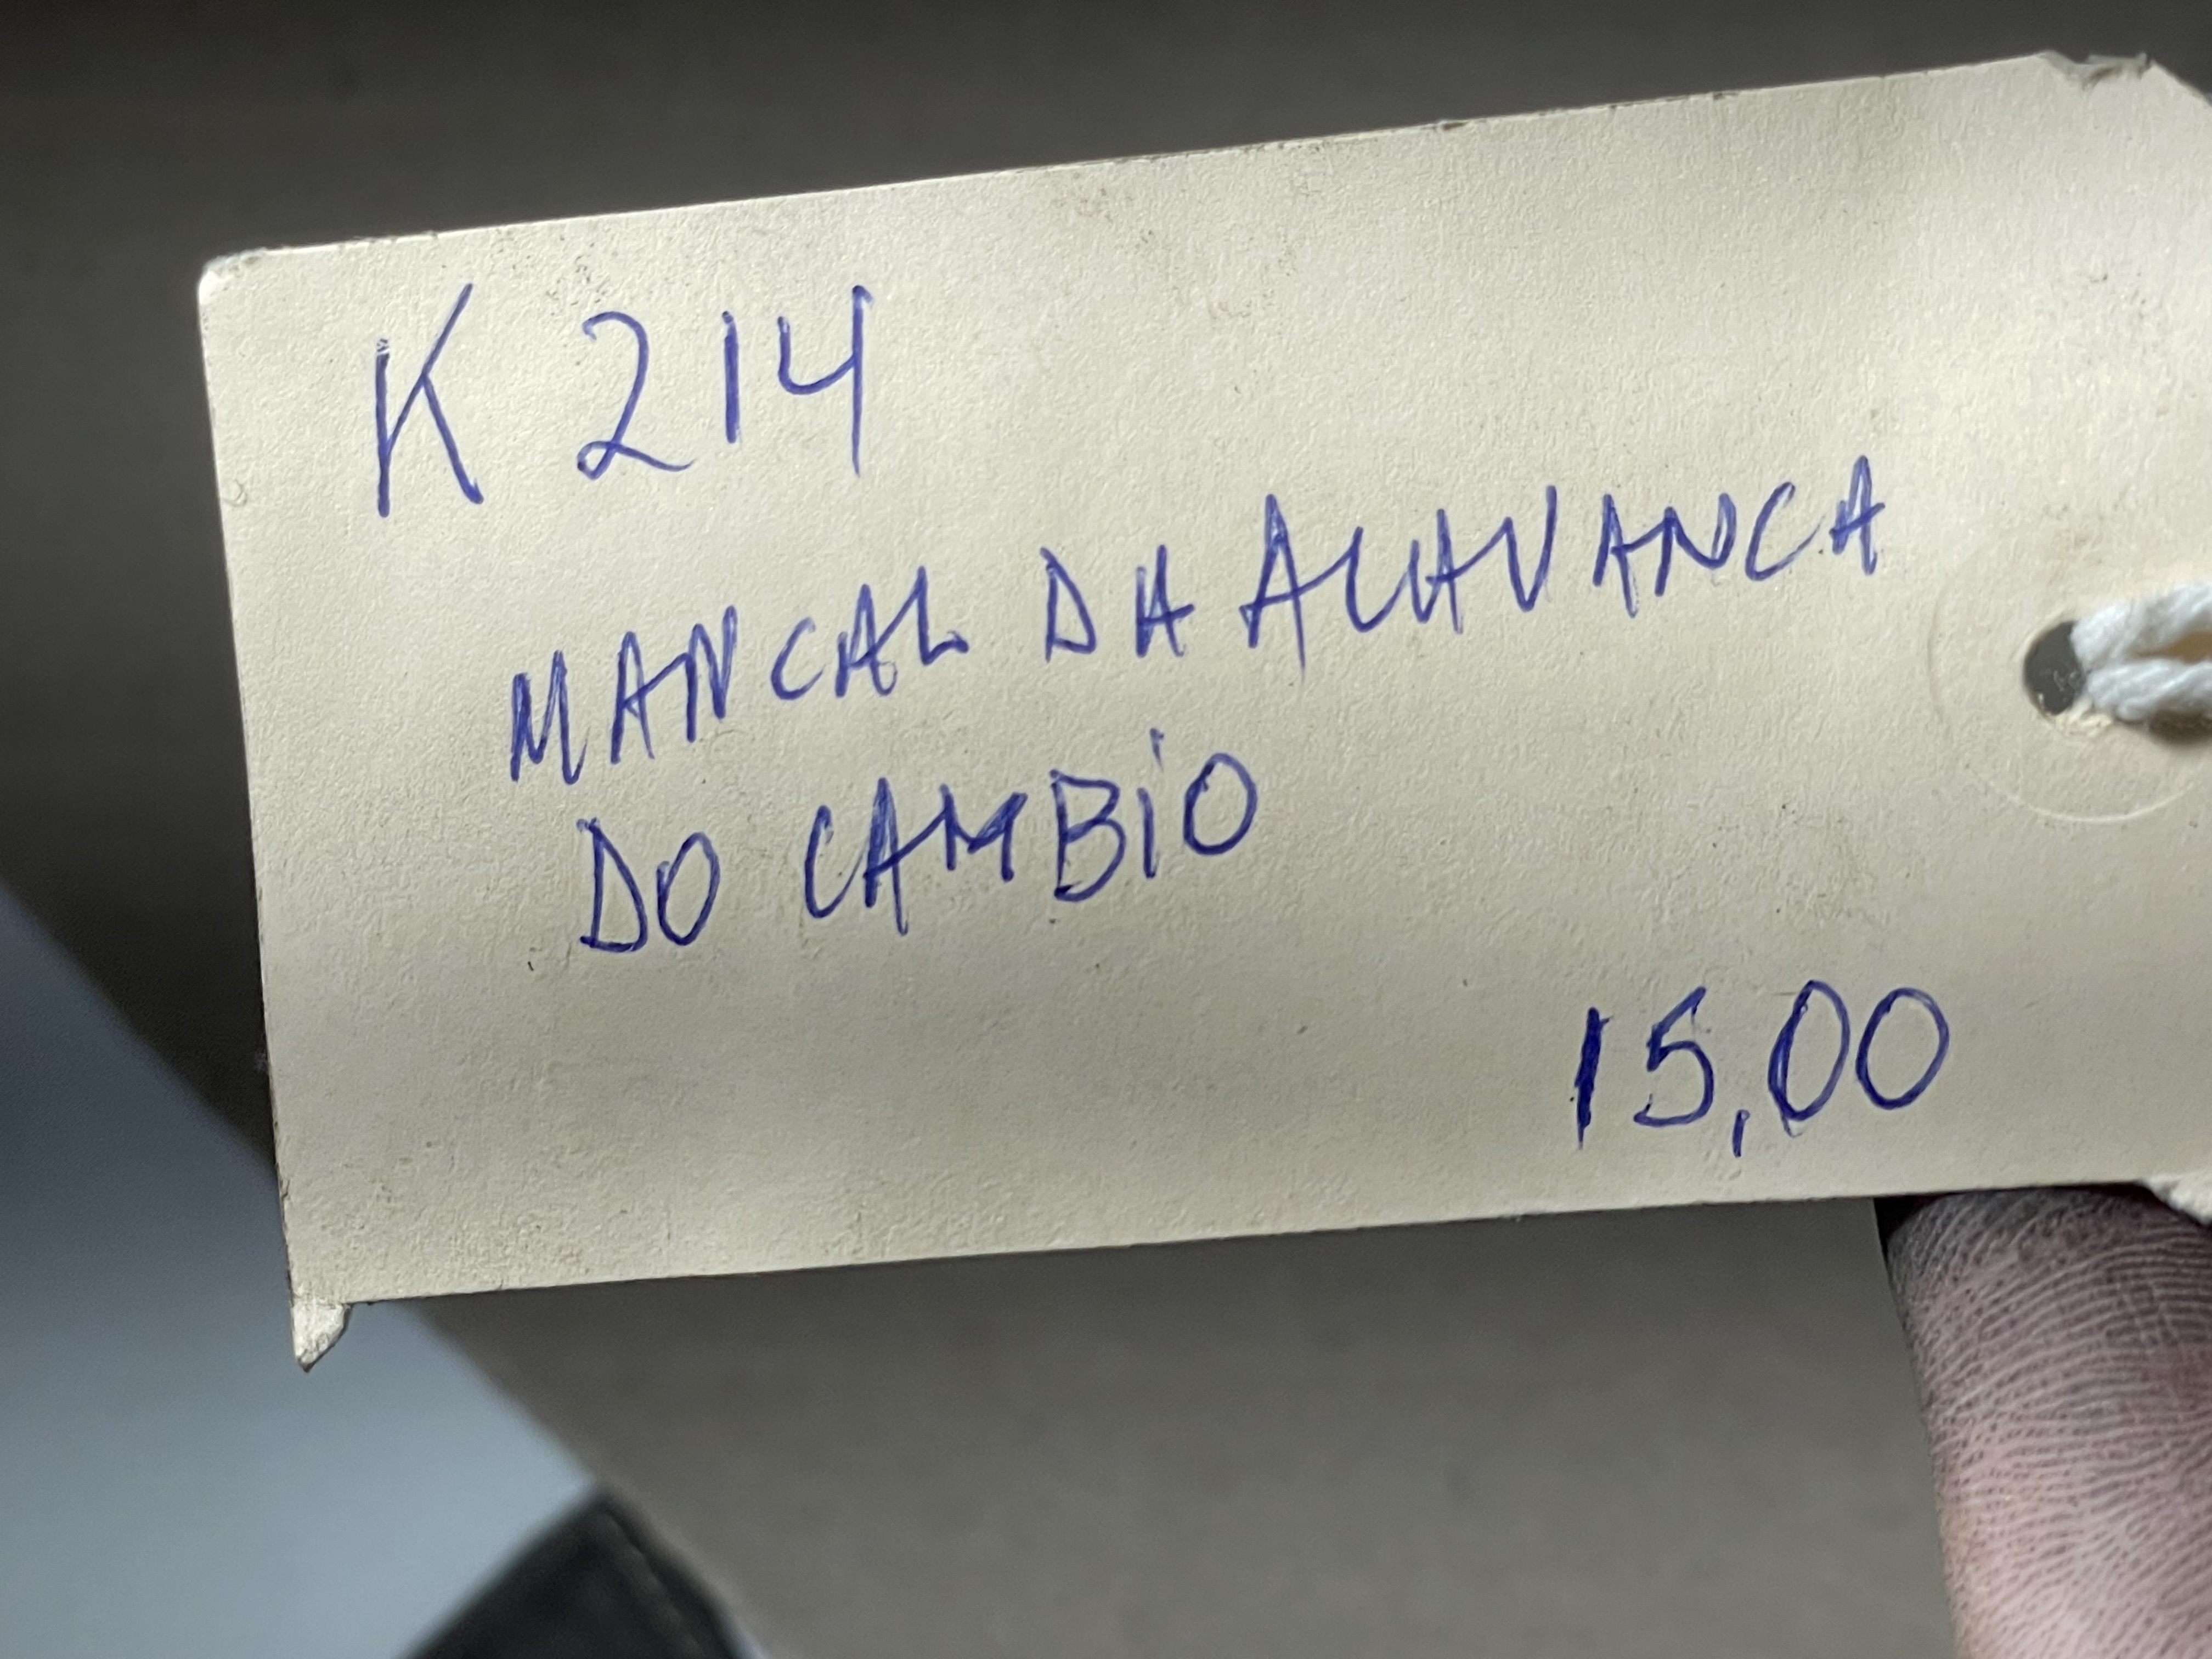 K 214
MANCAL DA ALAVANCA
DO CAMBiO
15,00